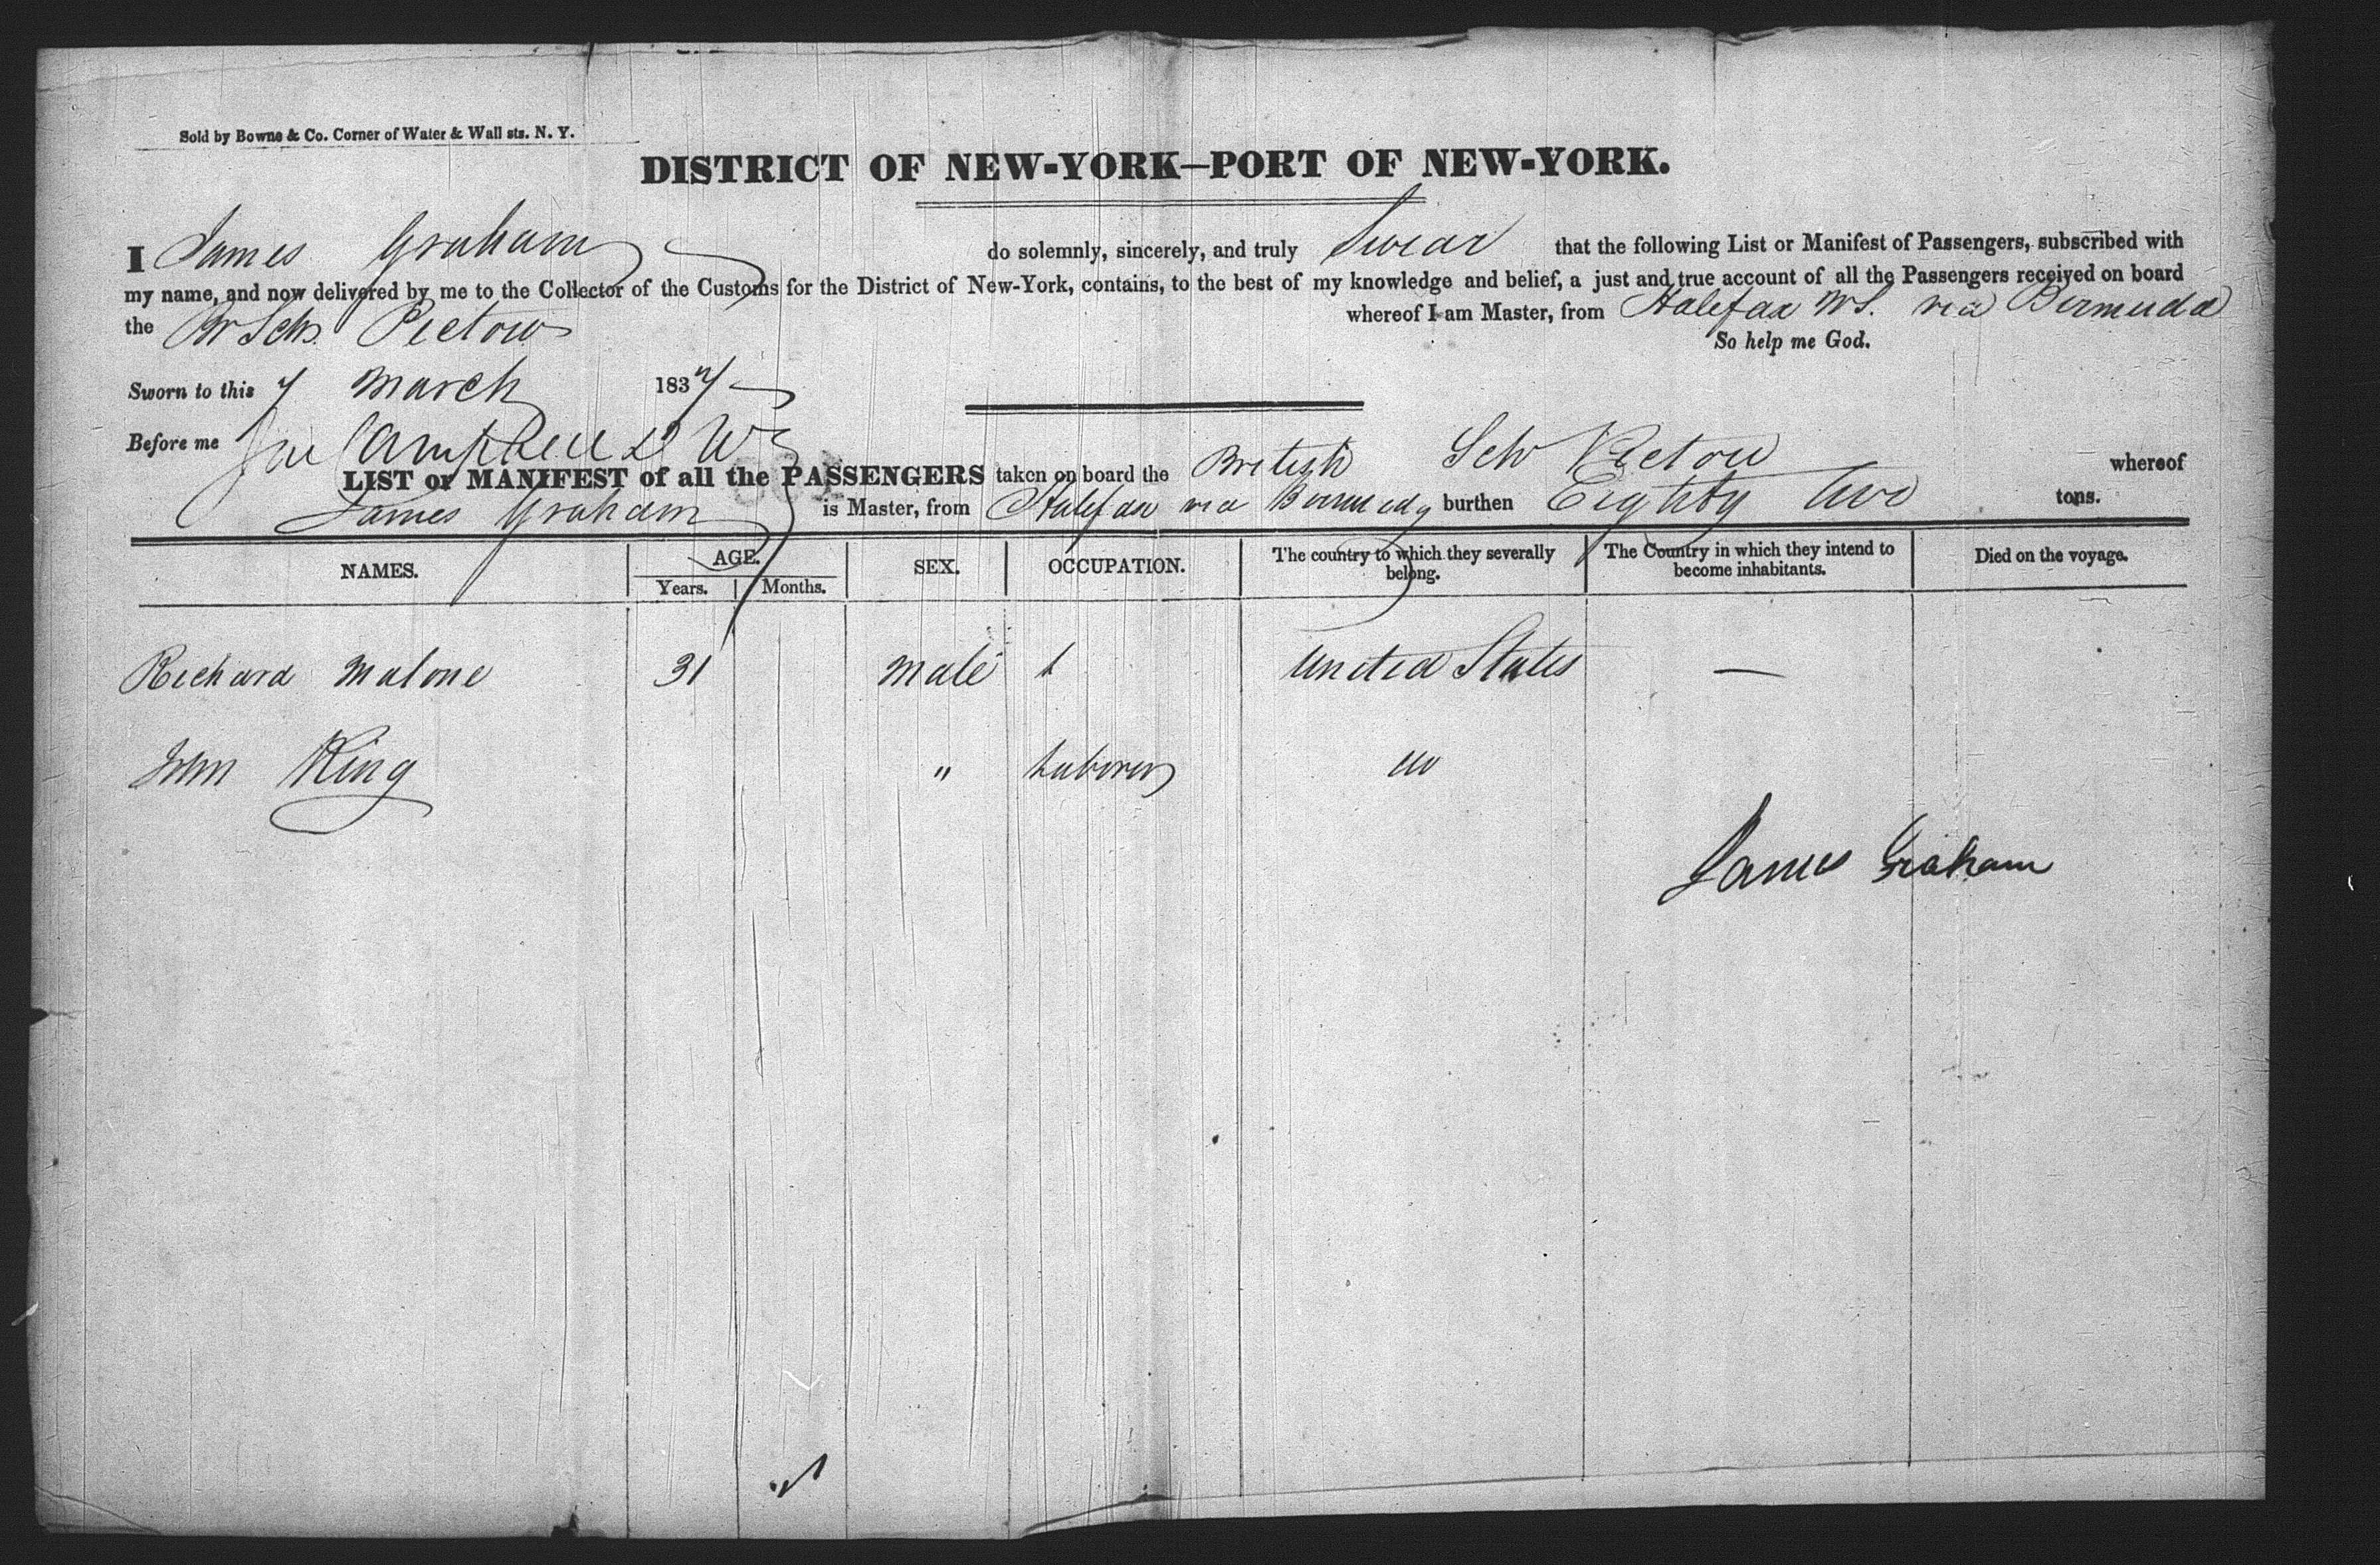 Sold by Bowne & Co. Corner of Water & Wall sts. N. Y.
DISTRICT OF NEW-YORK—PORT OF NEW-YORK.
I James Graham do solemnly, sincerely, and truly Swear that the following List or Manifest of Passengers, subscribed with
my name, and now delivered by me to the Collector of the Customs for the District of New-York, contains, to the best of my knowledge and belief, a just and true account of all the Passengers received on board
the Br Schr Pictou whereof I am Master, from Halifax NS. via Bermuda
So help me God.
Sworn to this 7 March 1837
Before me Campbell
LIST or MANIFEST of all the PASSENGERS taken on board the British Schr Pictou whereof
James Graham is Master, from Halifax via Bermuda burthen Eighty two tons.
NAMES. AGE. SEX. OCCUPATION. The country to which they severally belong. The Country in which they intend to become inhabitants. Died on the voyage.
Years. Months.
Richard Malone 31 male United States —
King " Laborer
James Graham